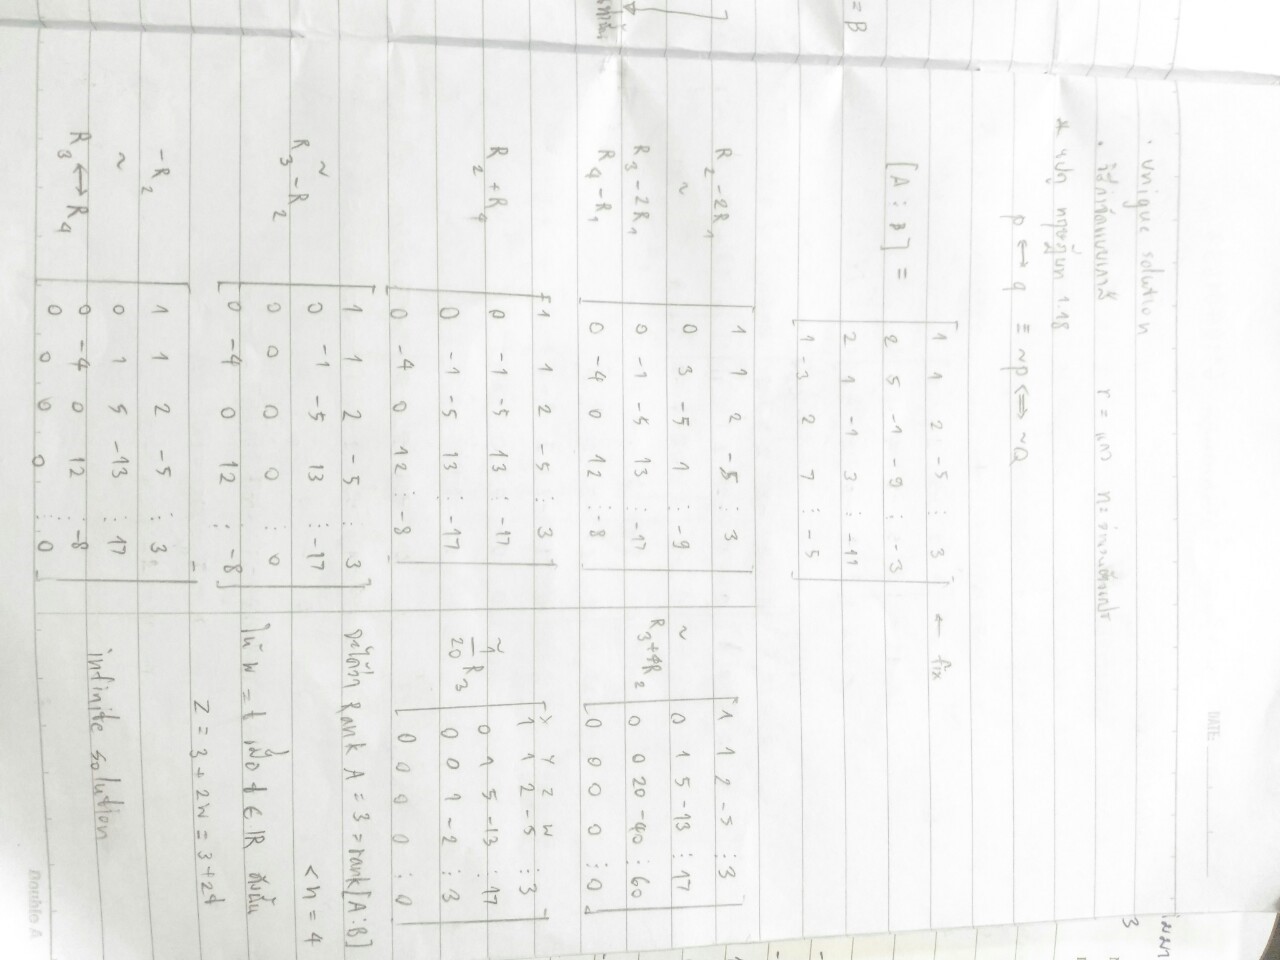 DATE:
• unique solution
• วิธีกำจัดแบบเกาส์ r = แถว n = จำนวนตัวแปร
* ทฤษฎีบท 1.18
p ↔ q ≡ ~p ⟺ ~Q
[A : B] =
1 1 2 -5 : 3 ← fix
2 5 -1 -9 : -3
2 1 -1 3 : -11
1 -3 2 7 : -5
= B
3
R2 - 2R1
~
R3 - 2R1
R4 - R1
1 1 2 -5 : 3
0 3 -5 1 : -9
0 -1 -5 13 : -17
0 -4 0 12 : -8
R2 + R4
1 1 2 -5 : 3
0 -1 -5 13 : -17
0 -1 -5 13 : -17
0 -4 0 12 : -8
~
R3 - R2
1 1 2 -5 : 3
0 -1 -5 13 : -17
0 0 0 0 : 0
0 -4 0 12 : -8
-R2
~
R3 ↔ R4
1 1 2 -5 : 3
0 1 5 -13 : 17
0 -4 0 12 : -8
0 0 0 0 : 0
~
R3+4R2
1 1 2 -5 : 3
0 1 5 -13 : 17
0 0 20 -40 : 60
0 0 0 0 : 0
~
1/20 R3
x y z w
1 1 2 -5 : 3
0 1 5 -13 : 17
0 0 1 -2 : 3
0 0 0 0 : 0
จะได้ว่า Rank A = 3 = rank[A:B]
< n = 4
ให้ w = t เมื่อ t ∈ IR ดังนั้น
Z = 3 + 2w = 3+2t
infinite solution
Double A